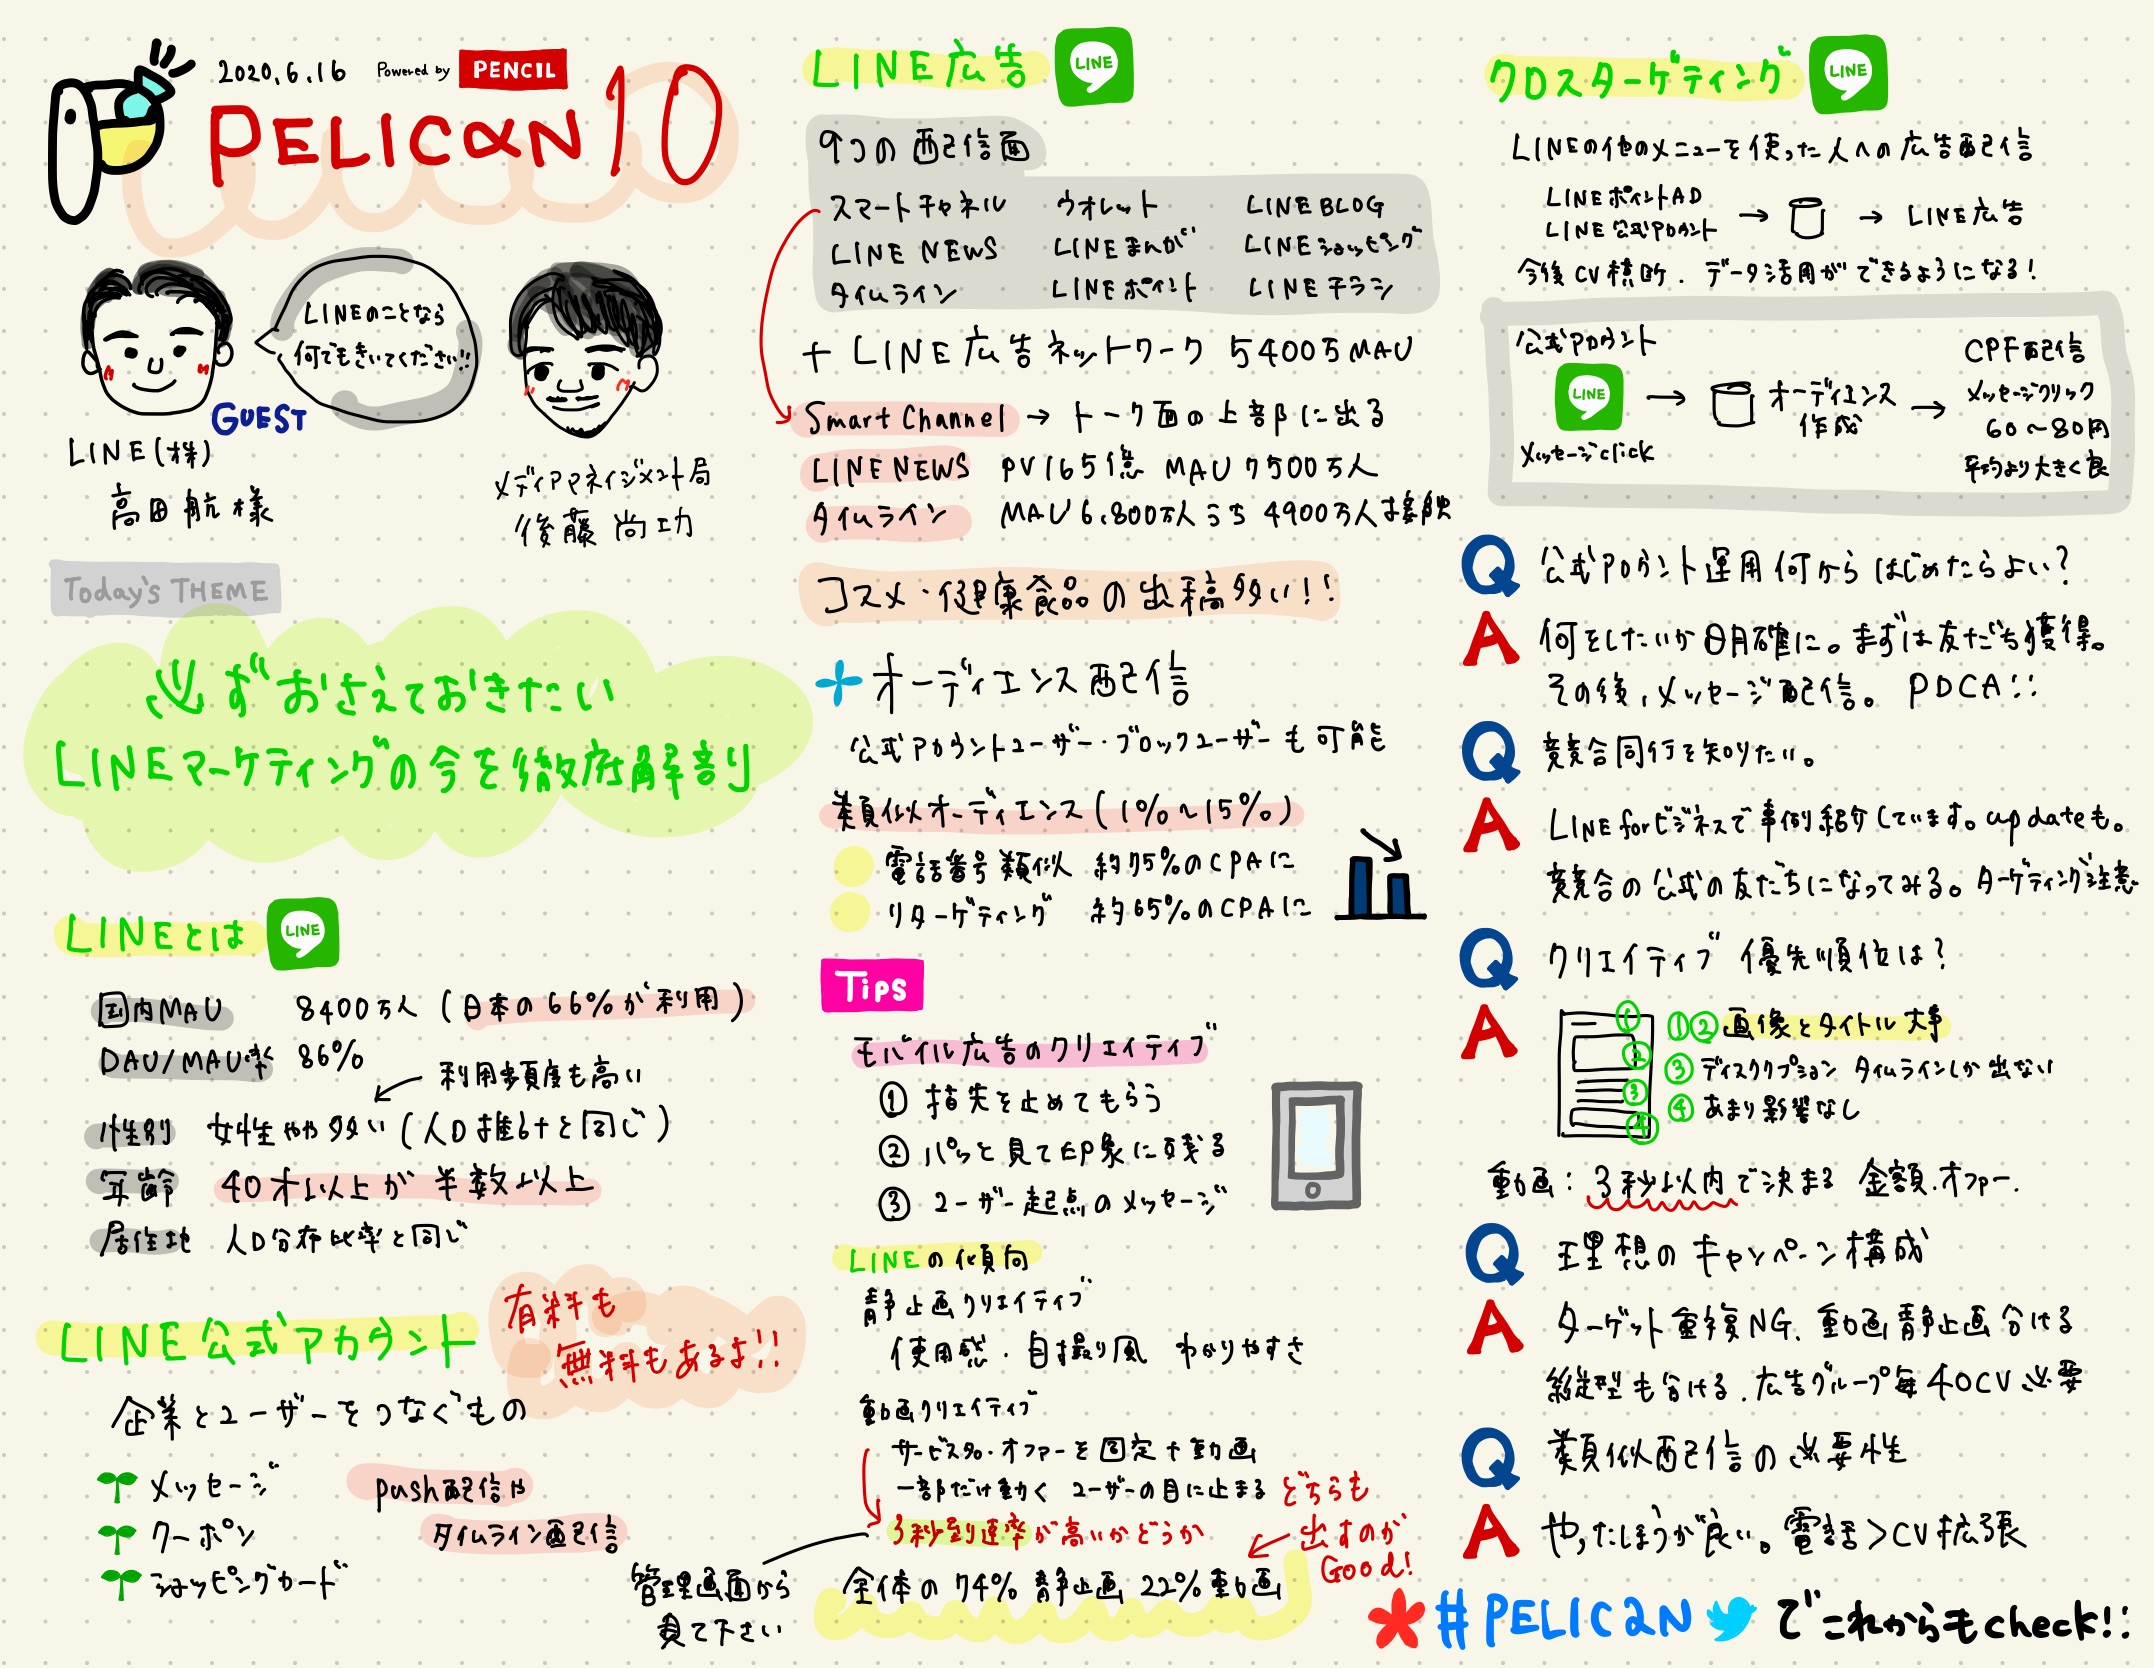 2020.6.16 Powered by PENCIL
PELICAN 10
LINEのことなら
何でもきいてください!!
GUEST
LINE(株)
高田航様
メディアマネイジメント局
後藤尚功
Today's THEME
必ずおさえておきたい
LINEマーケティングの今を徹底解剖
LINEとは LINE
国内MAU 8400万人 (日本の66%が利用)
DAU/MAU率 86%
利用頻度も高い
性別 女性やや多い(人口推計と同じ)
年齢 40才以上が半数以上
居住地 人口分布比率と同じ
LINE公式アカウント
有料も
無料もあるよ!!
企業とユーザーをつなぐもの
メッセージ
クーポン
ショッピングカード
push配信や
タイムライン配信
LINE広告 LINE
9つの配信面
スマートチャネル ウオレット LINE BLOG
LINE NEWS LINEまんが LINEショッピング
タイムライン LINEポイント LINEチラシ
+ LINE広告ネットワーク 5400万MAU
Smart Channel → トーク面の上部に出る
LINE NEWS PV165億 MAU7500万人
タイムライン MAU6,800万人うち4900万人は接触
コスメ・健康食品の出稿多い!!
オーディエンス配信
公式アカウントユーザー・ブロックユーザーも可能
類似オーディエンス(1%〜15%)
電話番号類似 約75%のCPAに
リターゲティング 約65%のCPAに
Tips
モバイル広告のクリエイティブ
① 指先を止めてもらう
② パッと見て印象に残る
③ ユーザー起点のメッセージ
LINEの傾向
静止画クリエイティブ
使用感・自撮り風 わかりやすさ
動画クリエイティブ
サービス名・オファーを固定+動画
一部だけ動く ユーザーの目に止まる
3秒到達率が高いかどうか
どちらも
出すのが
Good!
管理画面から
見て下さい
全体の74%静止画 22%動画
クロスターゲティング LINE
LINEの他のメニューを使った人への広告配信
LINEポイントAD
LINE公式アカウント → → LINE広告
今後CV横断.データ活用ができるようになる!
公式アカウント
LINE
メッセージclick
→ オーディエンス
作成 →
CPF配信
メッセージクリック
60〜80円
平均より大きく良
Q 公式アカウント運用何からはじめたらよい?
A 何をしたいか明確に。まずは友だち獲得。
その後,メッセージ配信。PDCA!!
Q 競合同行を知りたい。
A LINE forビジネスで事例紹介しています。updateも。
競合の公式の友だちになってみる。ターゲティング注意
Q クリエイティブ 優先順位は?
A ①②画像とタイトル大事
③ディスクリプション タイムラインしか出ない
④あまり影響なし
① ② ③ ④
動画:3秒以内で決まる 金額.オファー.
Q 理想のキャンペーン構成
A ターゲット重複NG、動画静止画分ける
縦型も分ける.広告グループ毎40CV必要
Q 類似配信の必要性
A やったほうが良い。電話>CV拡張
#PELICAN でこれからもcheck!!